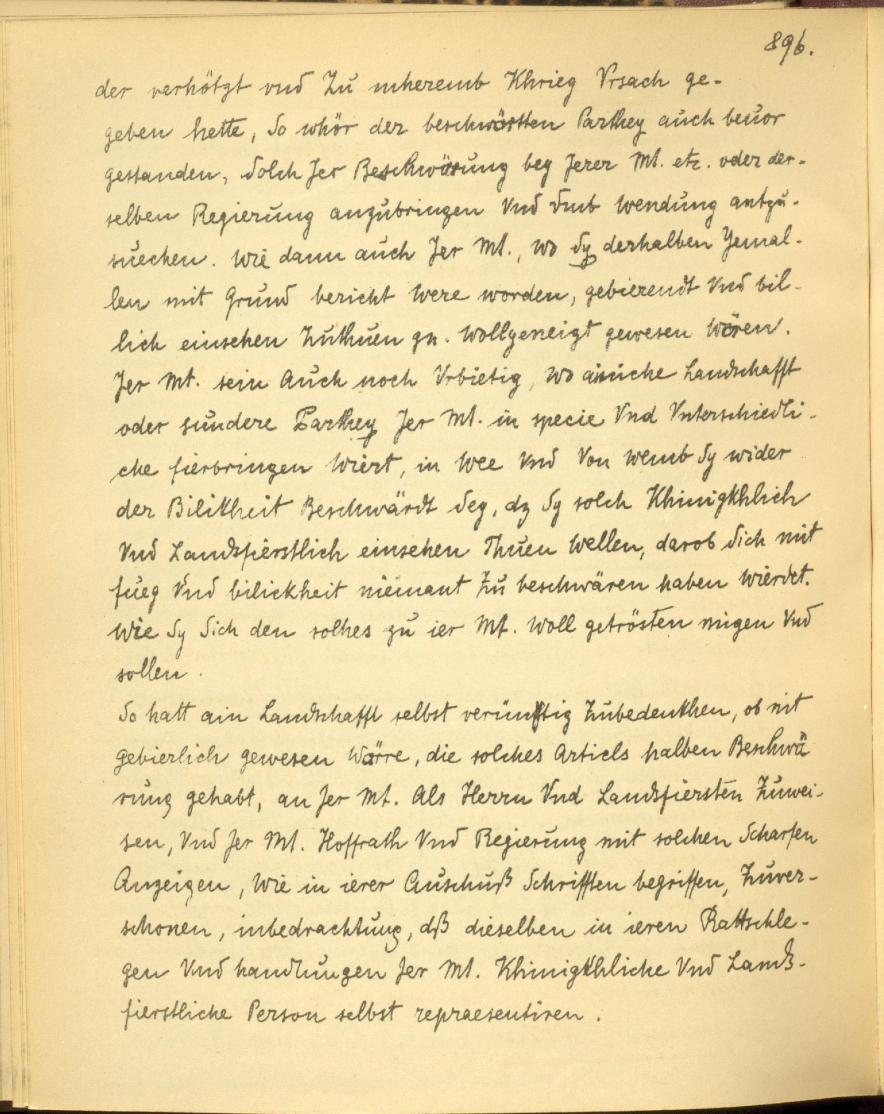 896.
der verhötzt vnd Zu mheremb Khrieg Vrsach ge-
geben hette, So whör der beschwörtten Parthey auch beuor
gestanden, Solch Jer Beschwörung bey Jerer Mt. etc. oder der-
selben Regierung anzubringen Vnd Vmb Wendung antzu-
suechen. Wie dann auch Jer Mt., Wo Sy derhalben Yemal-
len mit Grund bericht Were worden, gebierendt Vnd bil-
lich einsehen Zuthuen gn. Wollgeneigt gewesen Wören.
Jer Mt. sein Auch noch Vrbietig, Wo ainiche Landschafft
oder sundere Parthey Jer Mt. in specie Vnd Vnterschiedli-
che fierbringen Wiert, in Wee Vnd Von Wemb Sy wider
der Bilikheit Beschwärdt Sey, dz Sy solch Khinigkhlich
Vnd Landsfierstlich einsehen Thuen Wellen, darob Sich mit
fueg Vnd bilickheit niemant Zu beschwären haben Wierdet.
Wie Sy Sich den solhes zu ier Mt. Woll getrösten migen Vnd
sollen.
So hatt ain Landschafft selbst verünftig Zubedenkhen, ob nit
gebierlich gewesen Wärre, die solches Articls halben Beschwä
rung gehabt, an Jer Mt. Als Herrn Vnd Landsfiersten Zuwei-
sen, Vnd Jer Mt. Hoffrath Vnd Regierung mit solchen Scharfen
Anzeigen, Wie in ierer Auschuß Schrifften begriffen, Zuver-
schonen, inbedrachtung, dß dieselben in ieren Rattschle-
gen Vnd handlungen Jer Mt. Khinigkhliche Vnd Lands-
fierstliche Person selbst repraesentiren.